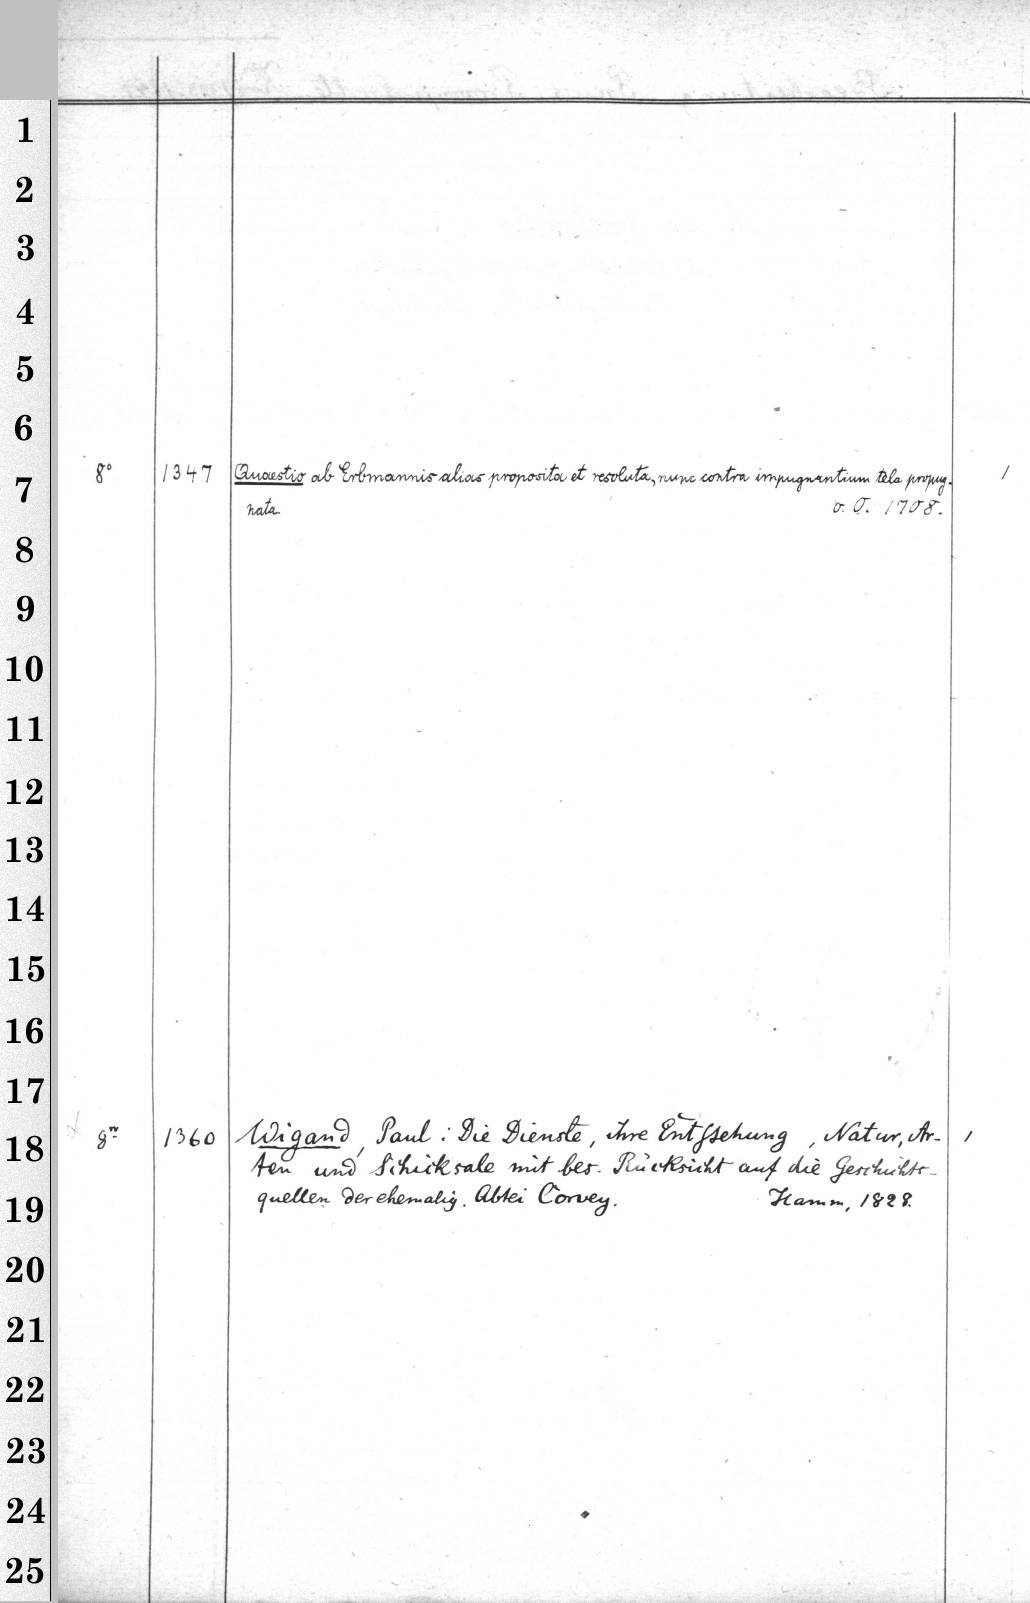 1
2
3
4
5
6
7
8° 1347 Quaestio ab Erbmannis alias proposita et resoluta, nunc contra impugnantium tela propug- 1
nata o. O. 1708.
8
9
10
11
12
13
14
15
16
17
18
8° 1360 Wigand, Paul: Die Dienste, ihre Entstehung, Natur, Ar- 1
ten und Schicksale mit bes. Rücksicht auf die Geschichts-
19
quellen der ehemalig. Abtei Corvey. Hamm, 1828.
20
21
22
23
24
25